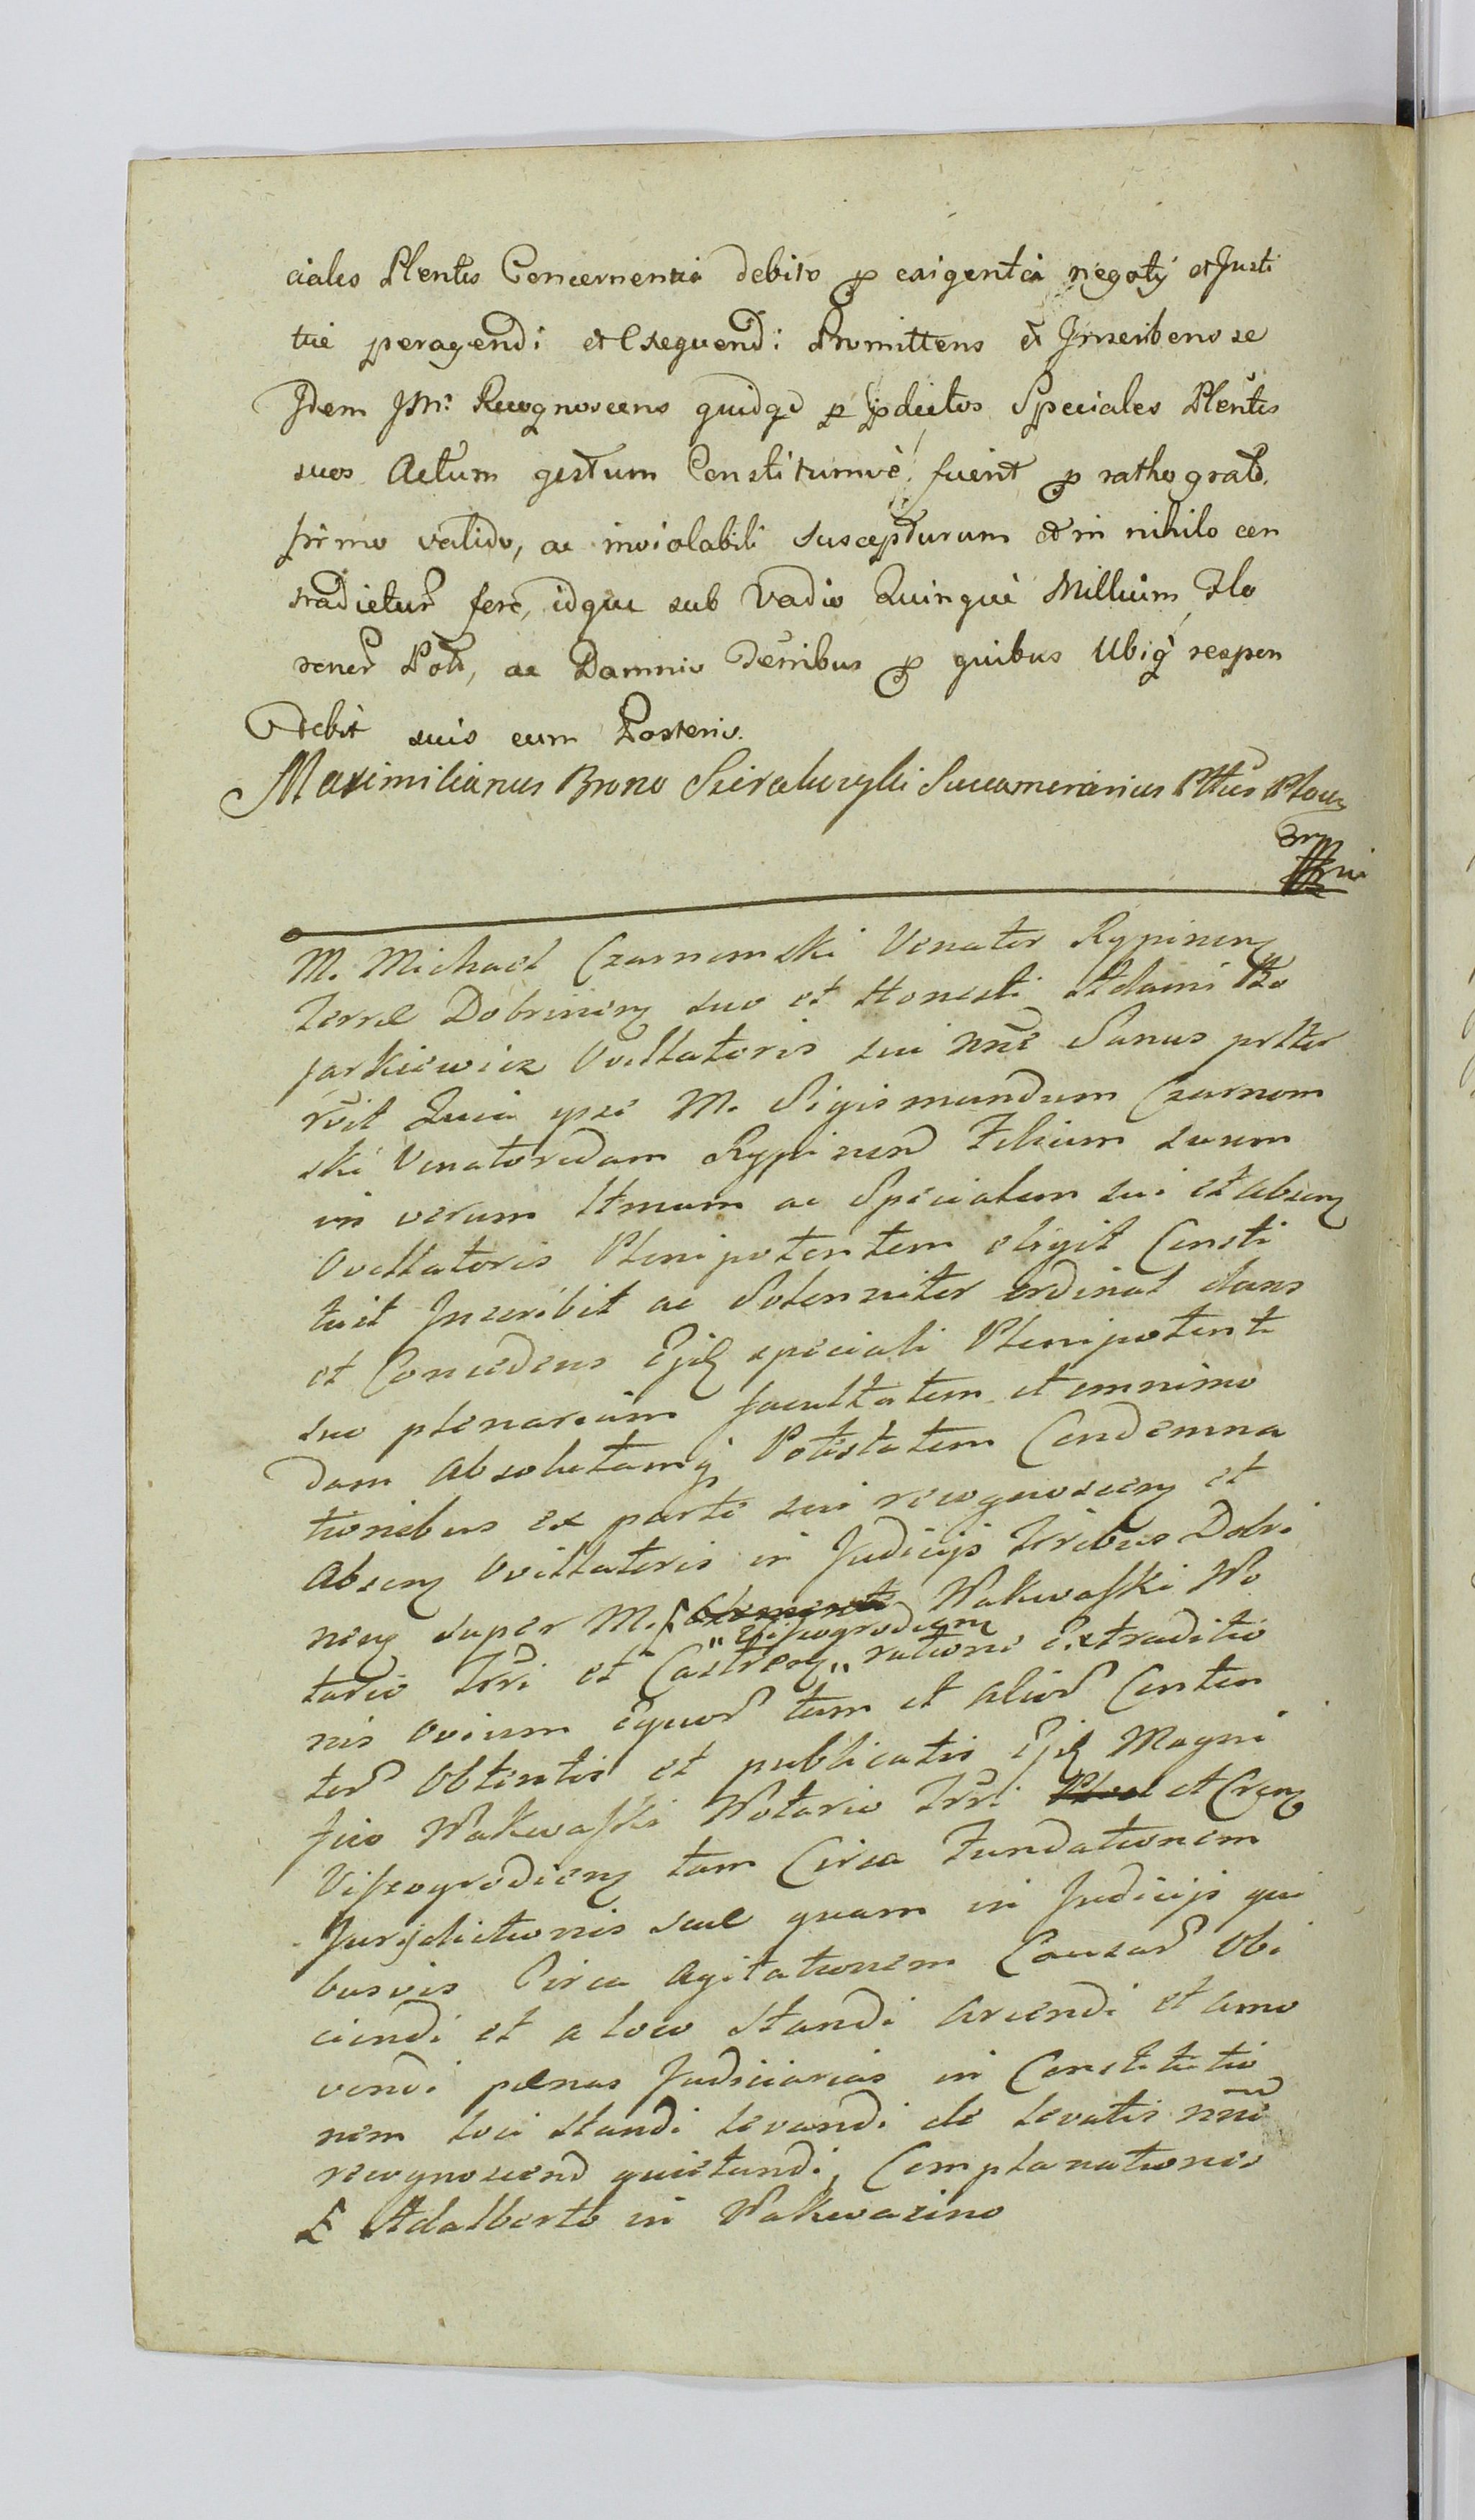 ciales Plentes Concernentia debito p exigentia negotÿ et Justi
tiæ peragendi et Exequendi Promittens et Inscribens se
Idem JMr. Recognoscens quidqd p pdictos Speciales Plentes
suos Actum gestum Constitumve fuerit p ratho grato,
firmo valido, ac inviolabili suscepturum et in nihilo con
tradictur fore, idque sub Vadio Quinque Millium Flo
renor Pol, ac Damnis Terribus p quibus Ubiq respon
debit suis cum Posteris.
Maximilianus Bruno Succamerarius
M. Michael Czarnomski Venator Rypinen
Terræ Dobrinen suo et Honesti Adami
jarkiewicz Ovillatoris sui nne Sanus
rvit Quia ipse M. Sigismundum Czarnom
ski Venatoridam Rypinen Filium suum
in verum ltmum ac Specialem sui et absen
Ovillatoris Plenipotentem eligit Consti
tuit Inscribit ac Solenniter ordinat dans
et Concedens Ejd speciali Plenipotenti
suo plenariam facultatem et omnimo
dam absolutamq Potestatem Condemna
tionibus ex parte sui recognoscen et
Absen Ovillatoris in Judicijs Tribus Dobri
nen super M. £ Wakwaski No
„Vissogrodiem
tario Trri et Castren „ ratione Extraditio
nis Ovium Equor tum et alior Conten
tor Obtentis et publicatis Ejd Magni
fico Wakwaski Notario Trri et Cren
Vissogrodien tam Circa Fundationem
Jurisdictionis suæ quam in Judicijs qui
busvis Circa Agitationem Causar Obi
ciendi et a loco Standi arcendi et amo
vendi pænas Judiciarias in Constitutio
nem loci standi levandi de levatis nne
recognoscend quietandi, Complanationes
£ Adalberto in Wakwazino